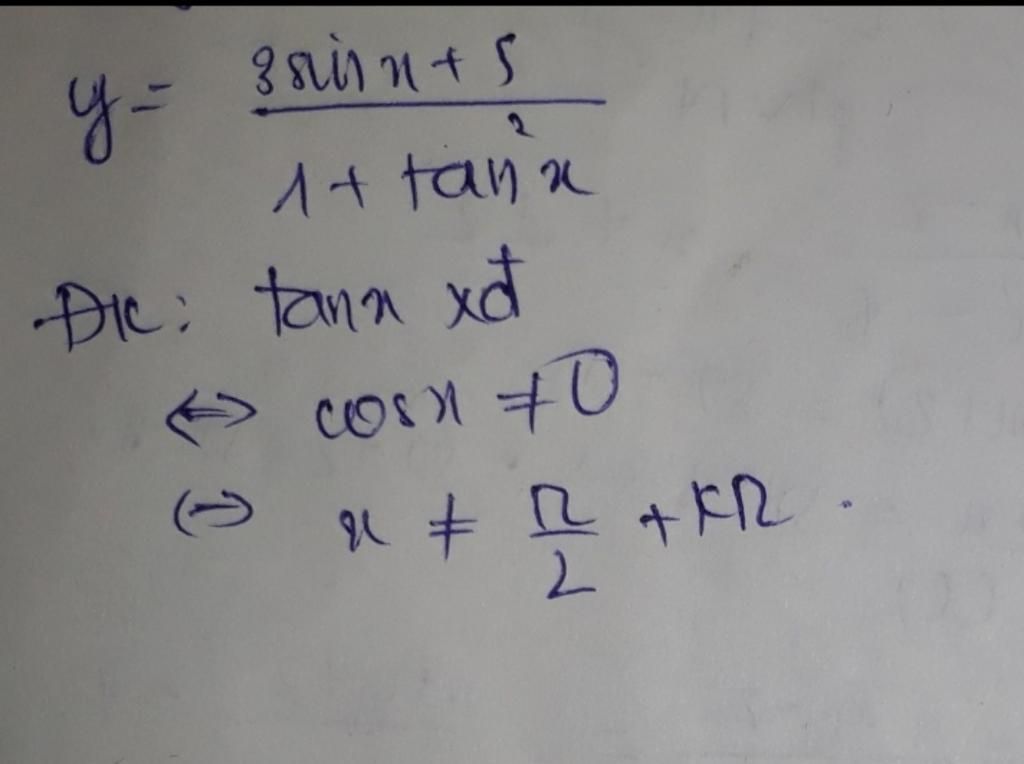 y = (3 sin x + 5) / (1 + tan² x)
ĐK: tan x xđ
⇔ cos x ≠ 0
⇔ x ≠ π/2 + kπ.